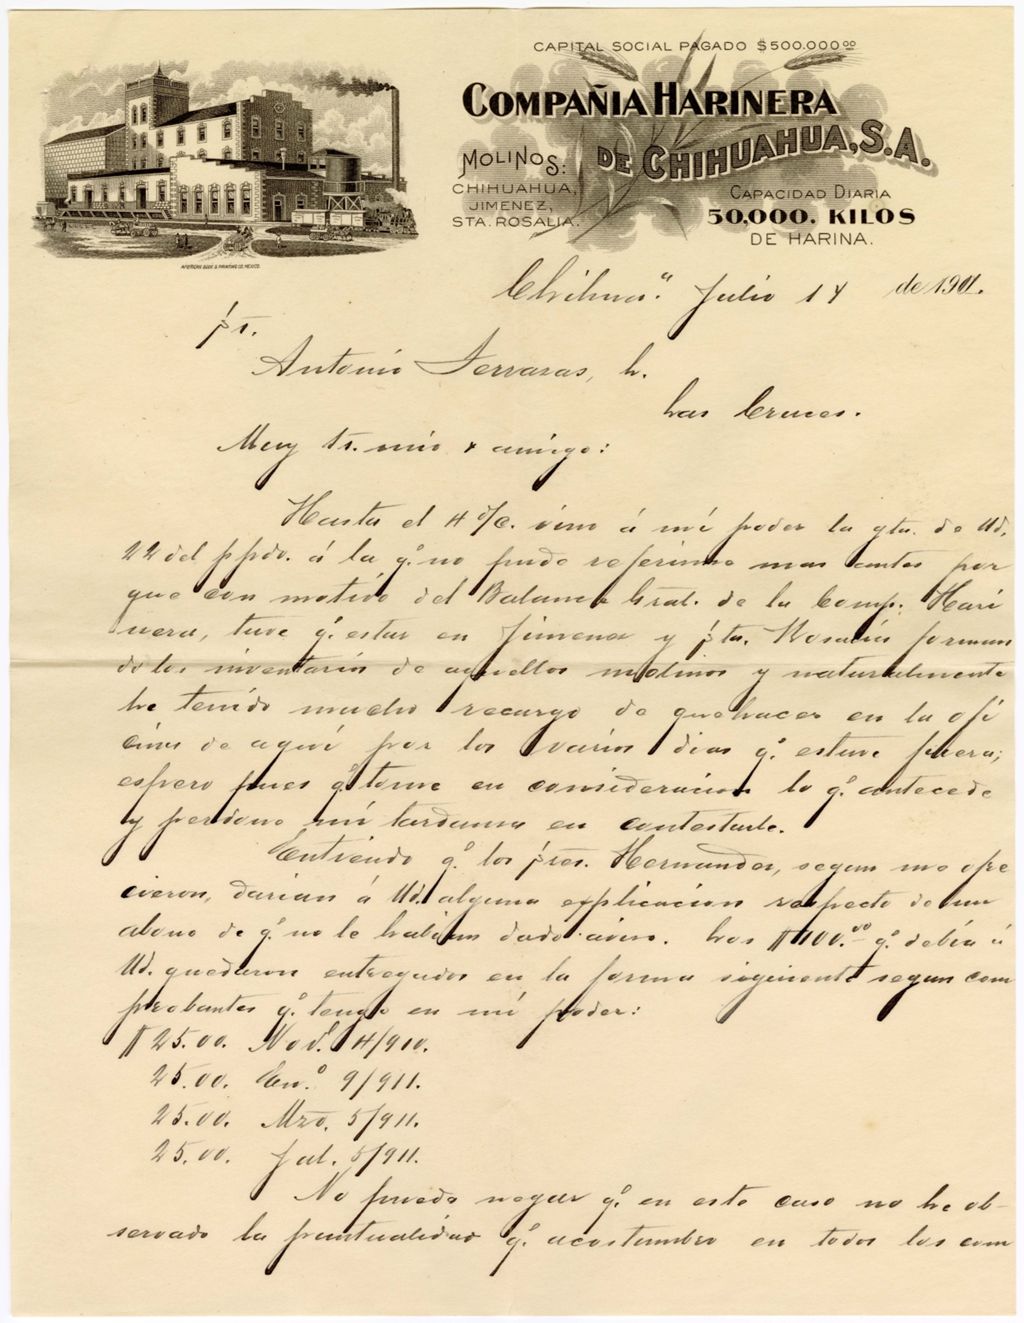 CAPITAL SOCIAL PAGADO $500.000⁰⁰
COMPAÑIA HARINERA
DE CHIHUAHUA, S.A.
MOLINOS:
CHIHUAHUA,
JIMENEZ,
STA. ROSALIA.
CAPACIDAD DIARIA
50,000. KILOS
DE HARINA.
AMERICAN BOOK & PRINTING CO. MEXICO.
Chihuaª. Julio 14 de 1911.
Sr.
Antonio Terrazas, h.
Las Cruces.
Muy Sr. mio y amigo:
Hasta el 4 d/c. vino á mi poder la gta. de Ud.
22 del ppdo. á la q.º no pude referirme mas antes por
que con motivo del Balance Gral. de la Comp. Hari
nera, tuve q.º estar en Jimenez y Sta. Rosalia forman
do los inventarios de aquellos molinos y naturalmente
he tenido mucho recargo de quehacer en la ofi
cina de aquí por los varios dias q.º estuve fuera;
espero pues q.º tome en consideracion lo q.º antecede
y perdone mi tardanza en contestarle.
Entiendo q.º los Sres. Hernandez, segun me ofre
cieron, darian á Ud. alguna explicacion respecto de un
abono de q.º no le habian dado aviso. Los $100.⁰⁰ q.º debia á
Ud. quedaron entregados en la forma siguiente segun com
probantes q.º tengo en mi poder:
$25.00. Nov.º 4/910.
25.00. En.º 9/911.
25.00. Mzo. 5/911.
25.00. Jul. 5/911.
No puedo negar q.º en este caso no he ob-
servado la puntualidad q.º acostumbro en todos los com